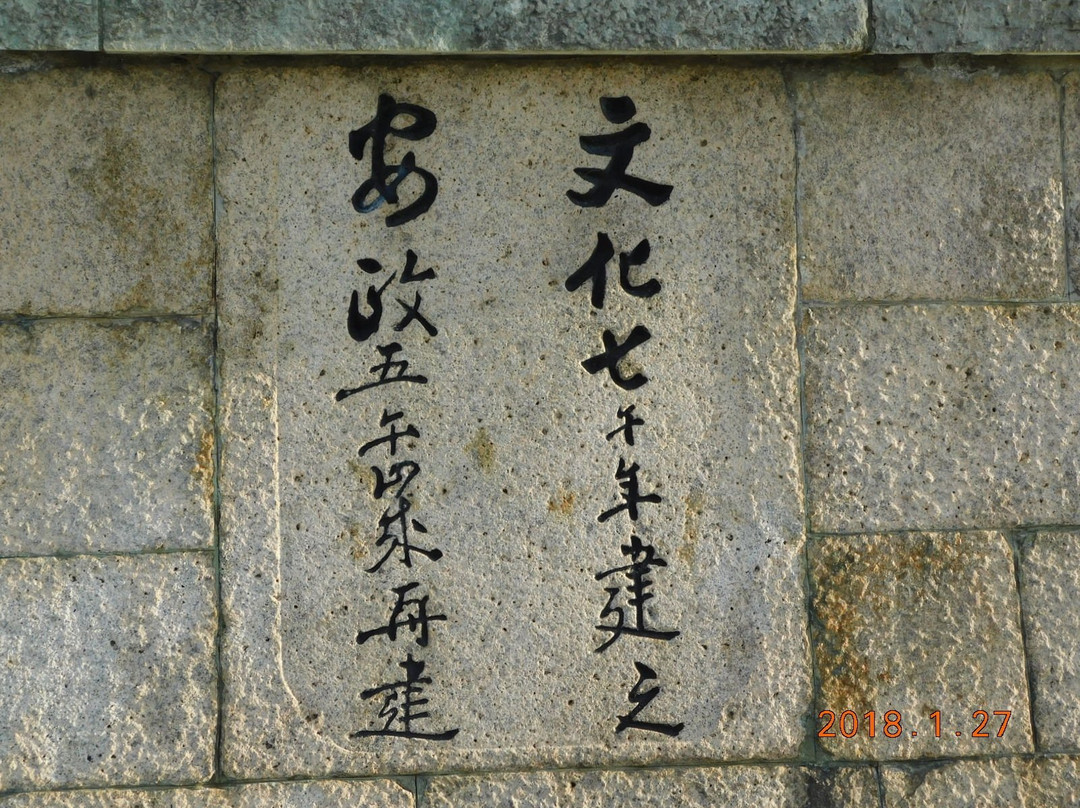 文化七午年建之
安政五午歳再建
2018.1.27